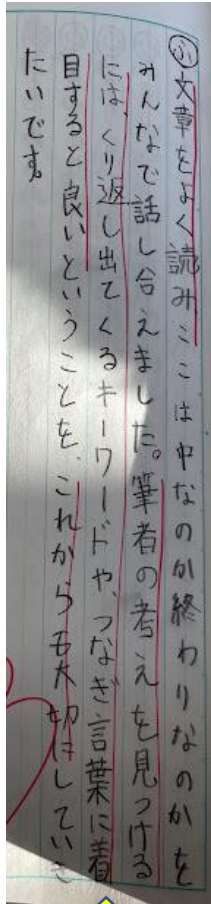 ふ文章をよく読みここは中なのか終わりなのかを
みんなで話し合えました。筆者の考えを見つける
には、くり返し出てくるキーワードや、つなぎ言葉に着
目すると良いということを、これからも大切にしていき
たいです。